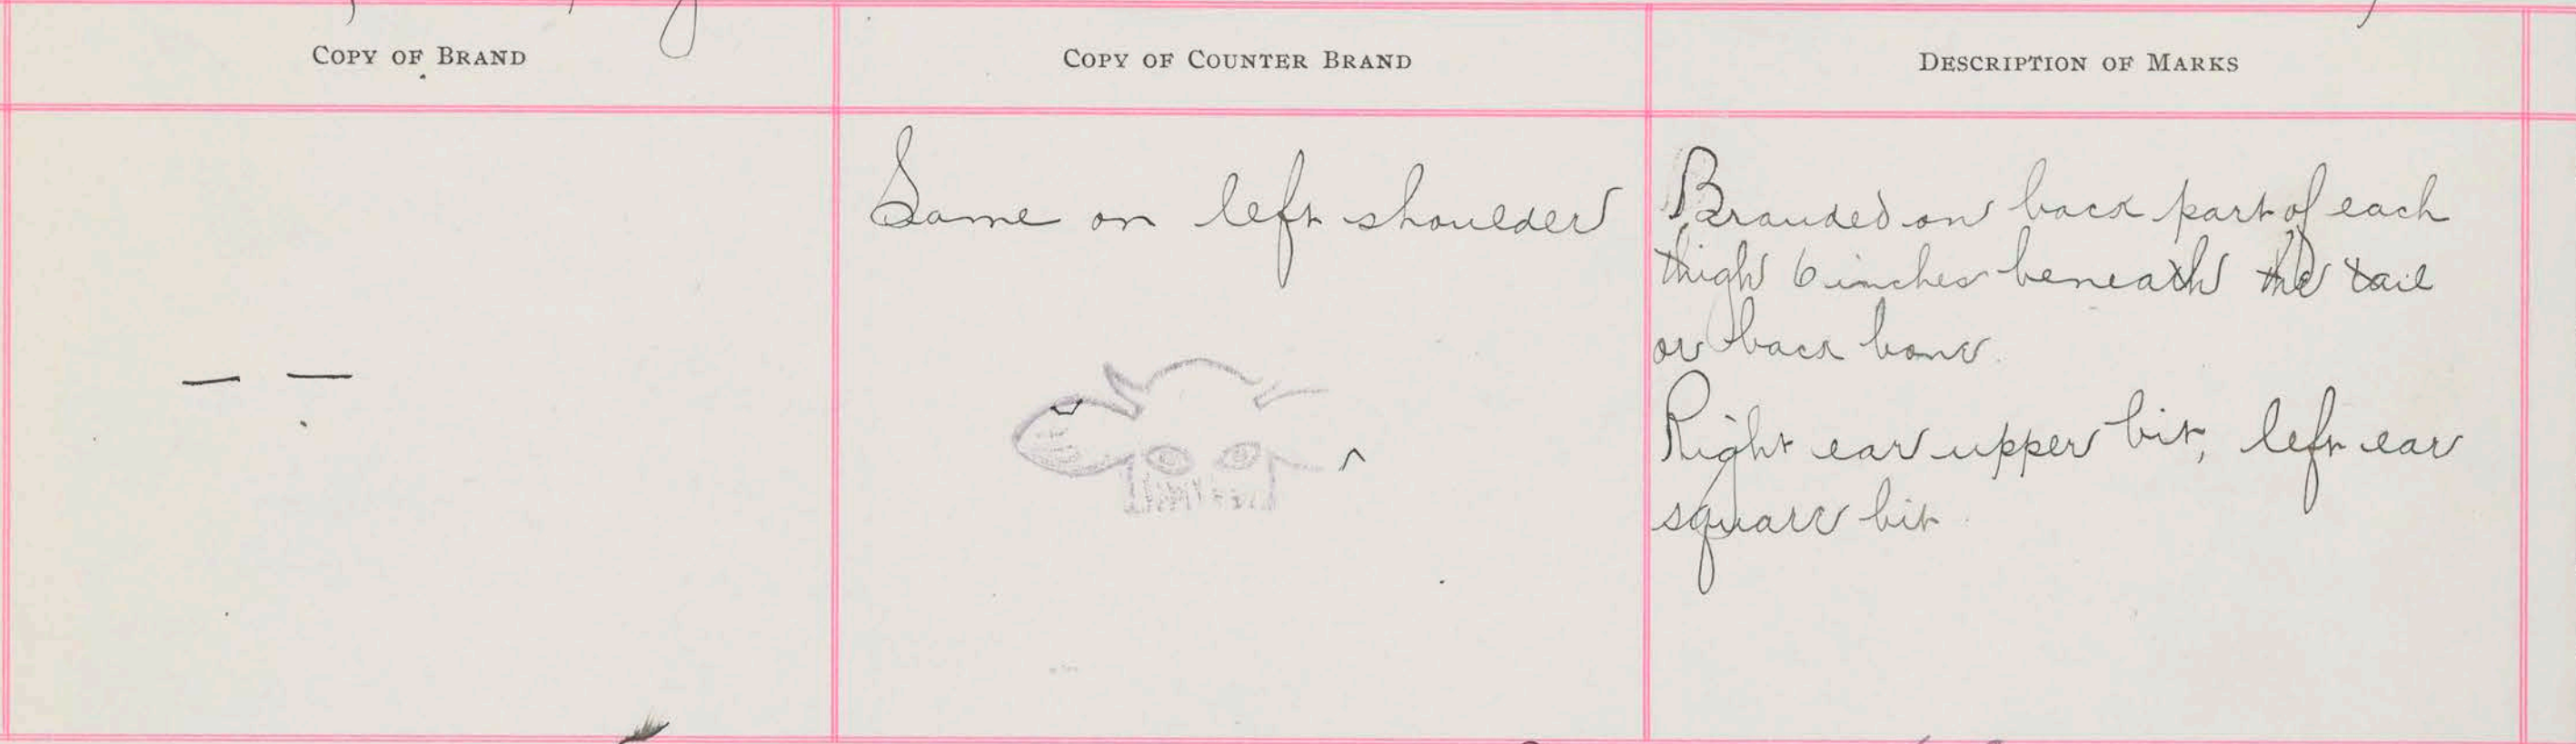 COPY OF BRAND
COPY OF COUNTER BRAND
DESCRIPTION OF MARKS
— —
Same on left shoulder
Branded on back part of each
thigh 6 inches beneath the tail
or back bone.
Right ear upper bit, left ear
square bit